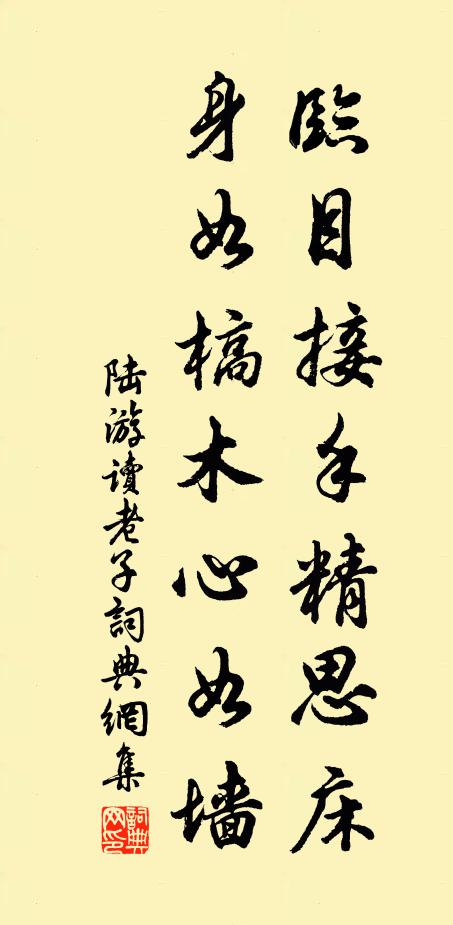 臨目接手精思床
身如槁木心如墙
陆游讀老子詞典網集
詞典网印